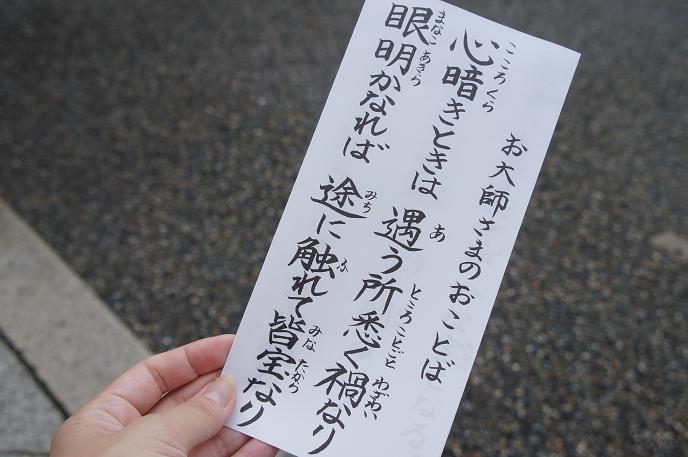 お大師さまのおことば
心暗きときは　遇う所悉く禍なり
こころくら　あ　ところことごと　わざわい
眼明かなれば　途に触れて皆宝なり
まなこあきら　みち　ふ　みなたから